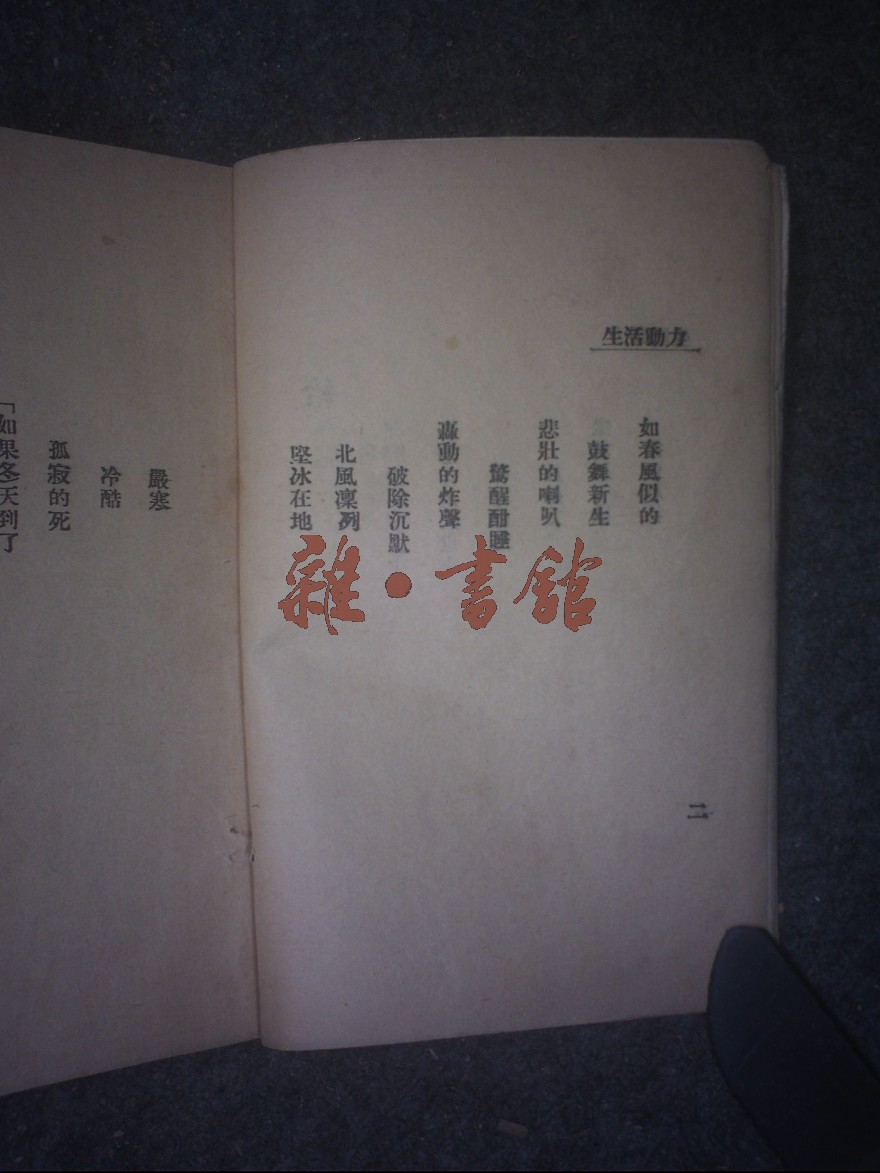 生活動力
如春風似的
鼓舞新生
悲壯的喇叭
驚醒酣睡
轟動的炸聲
破除沉默
北風凜列
堅冰在地
二
嚴寒
冷酷
孤寂的死
「如果冬天到了
雜·書館